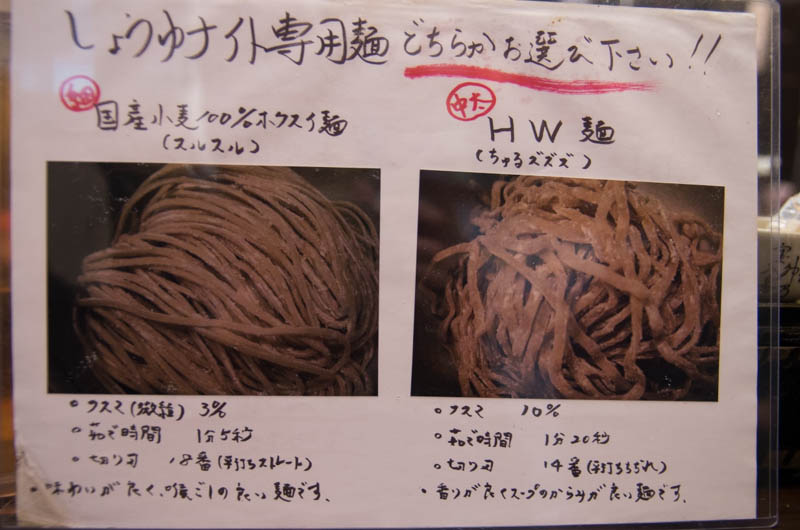 しょうゆナイト専用麺 どちらかお選び下さい!!
細
国産小麦100%ホウスイ麺
(スルスル)
・フスマ(微粒) 3%
・茹で時間 1分5秒
・切り刃 18番(平打ちストレート)
・味わいが良く、喉ごしの良い麺です。
中太
HW麺
(ちゅるズズズ)
・フスマ 10%
・茹で時間 1分20秒
・切り刃 14番(平打ちちぢれ)
・香りが良くスープのからみが良い麺です。